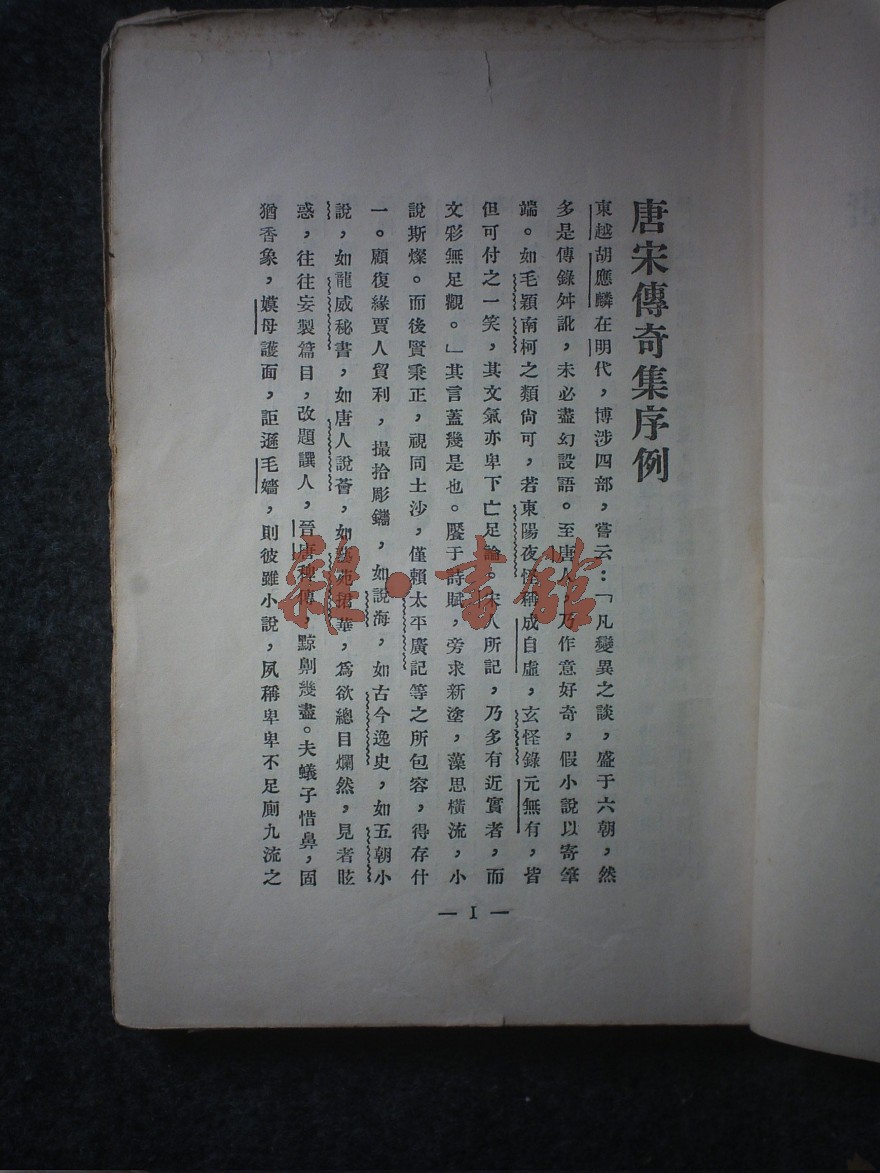 唐宋傳奇集序例
東越胡應麟在明代，博涉四部，嘗云：「凡變異之談，盛于六朝，然
多是傳錄舛訛，未必盡幻設語。至唐人，乃作意好奇，假小說以寄筆
端。如毛穎南柯之類尙可，若東陽夜怪稱成自虛，玄怪錄元無有，皆
但可付之一笑，其文氣亦卑下亡足論。宋人所記，乃多有近實者，而
文彩無足觀。」其言蓋幾是也。饜于詩賦，旁求新塗，藻思橫流，小
說斯燦。而後賢秉正，視同土沙，僅賴太平廣記等之所包容，得存什
一。顧復緣賈人貿利，撮拾彫鐫，如說海，如古今逸史，如五朝小
說，如龍威秘書，如唐人說薈，如藝苑捃華，爲欲總目爛然，見者眩
惑，往往妄製篇目，改題譔人，晉唐稗傳，黥劓幾盡。夫蟻子惜鼻，固
猶香象，嫫母護面，詎遜毛嬙，則彼雖小說，夙稱卑卑不足廁九流之
— I —
雜·書館